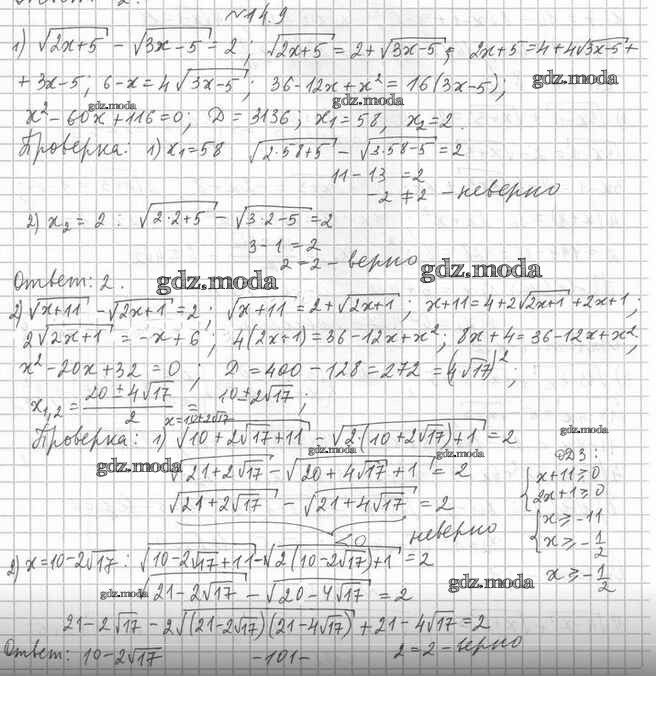 №14.9
1) √(2x+5) - √(3x-5) = 2; √(2x+5) = 2+√(3x-5); 2x+5=4+4√(3x-5)+
+3x-5; 6-x=4√(3x-5); 36-12x+x²=16(3x-5);
gdz.moda
gdz.moda
gdz.moda
x²-60x+116=0; D=3136; x₁=58, x₂=2.
Проверка: 1) x₁=58 √(2·58+5) - √(3·58-5) = 2
11-13 =2
-2 ≠ 2 - неверно
2) x₂=2: √(2·2+5) - √(3·2-5) = 2
3-1=2
2=2 - верно
Ответ: 2.
gdz.moda
gdz.moda
2) √(x+11) - √(2x+1) = 2; √(x+11) = 2+√(2x+1); x+11=4+2√(2x+1)+2x+1;
2√(2x+1) = -x+6; 4(2x+1)=36-12x+x²; 8x+4=36-12x+x²;
x²-20x+32=0; D=400-128=272=(4√17)²;
x₁,₂ = (20±4√17)/2 = 10±2√17;
x=10+2√17
Проверка: 1) √(10+2√17+11) - √(2·(10+2√17)+1) = 2
gdz.moda
gdz.moda
gdz.moda
gdz.moda
ОДЗ:
√(21+2√17) - √(20+4√17+1) = 2
{x+11≥0
2x+1≥0
√(21+2√17) - √(21+4√17) = 2
{x≥-11
x≥-1/2
<0 неверно
x≥-1/2
2) x=10-2√17: √(10-2√17+11) - √(2(10-2√17)+1) = 2
gdz.moda
gdz.moda
√(21-2√17) - √(20-4√17) = 2
21-2√17 - 2√((21-2√17)(21-4√17)) + 21-4√17 = 2
2=2 - верно
Ответ: 10-2√17
-101-